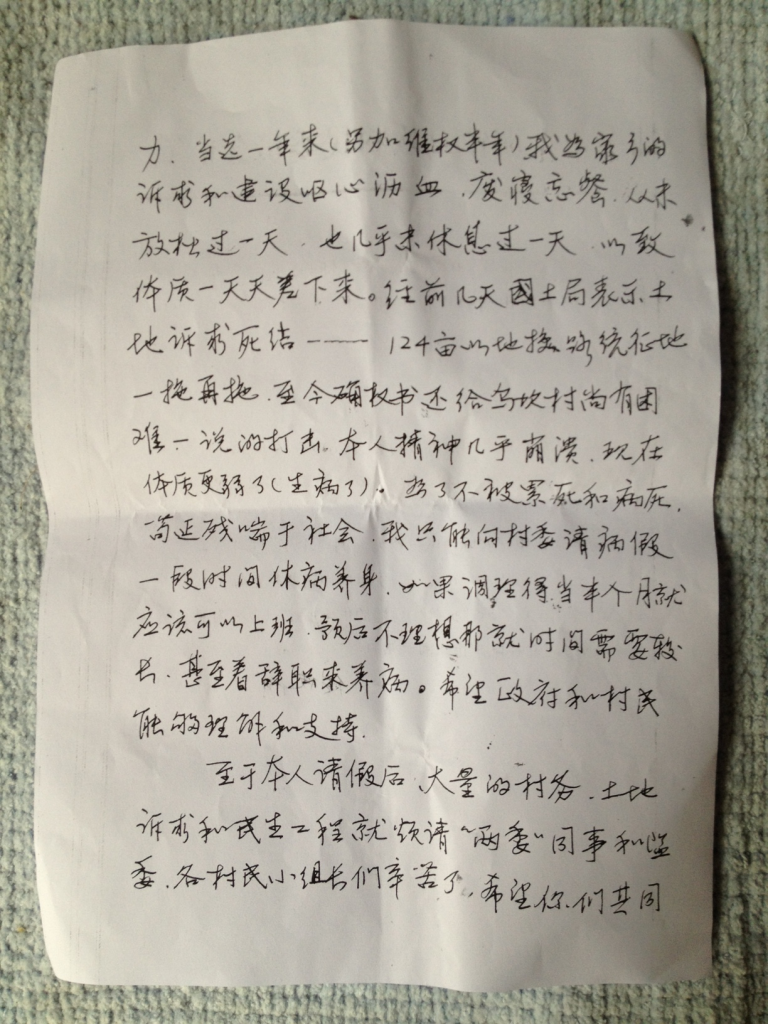 力，当选一年来（另加维权半年）我为家乡的
诉求和建设呕心沥血，废寝忘餐，从未
放松过一天，也几乎未休息过一天，以致
体质一天天差下来。经前几天國土局表示土
地诉求死结—— 124亩以地换路统征地
一拖再拖，至今确权书还给乌坎村尚有困
难一说的打击，本人精神几乎崩溃，现在
体质更弱了（生病了）。为了不被累死和病死，
苟延残喘于社会，我只能向村委请病假
一段时间休病养身，如果调理得当半个月就
应该可以上班，预后不理想那就时间需要较
长，甚至着辞职来养病。希望政府和村民
能够理解和支持。
至于本人请假后，大量的村务、土地
诉求和民生工程就烦请“两委”同事和监
委、各村民小组长们辛苦了，希望你们共同